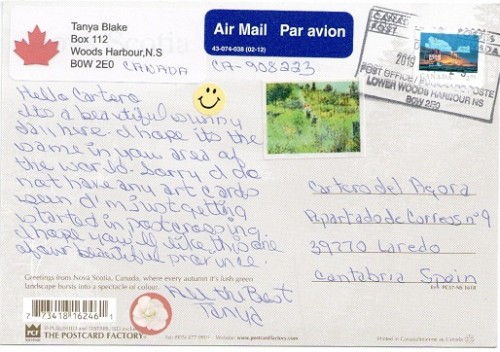 Tanya Blake
Box 112
Woods Harbour, N.S
B0W 2E0 CANADA
Air Mail Par avion
43-074-038 (02-12)
CA-908233
2019
POST OFFICE / BUREAU DE POSTE
LOWER WOODS HARBOUR NS
B0W 2E0
Hello Cartero
Its a beautiful sunny
day here. I hope its the
same in your area of
the world. Sorry I do
not have any art cards
yet I'm just getting
started in postcrossing
I hope you'll like this one
of our beautiful province.
All the Best
Tanya
Cartero del Agora
Apartado de Correos nº 9
39770 Laredo
Cantabria Spain
Greetings from Nova Scotia, Canada, where every autumn it's lush green
landscape bursts into a spectacle of colour.
7 73418 16246 1
PCF
THE POSTCARD FACTORY
www.postcardfactory.com
Printed in Canada